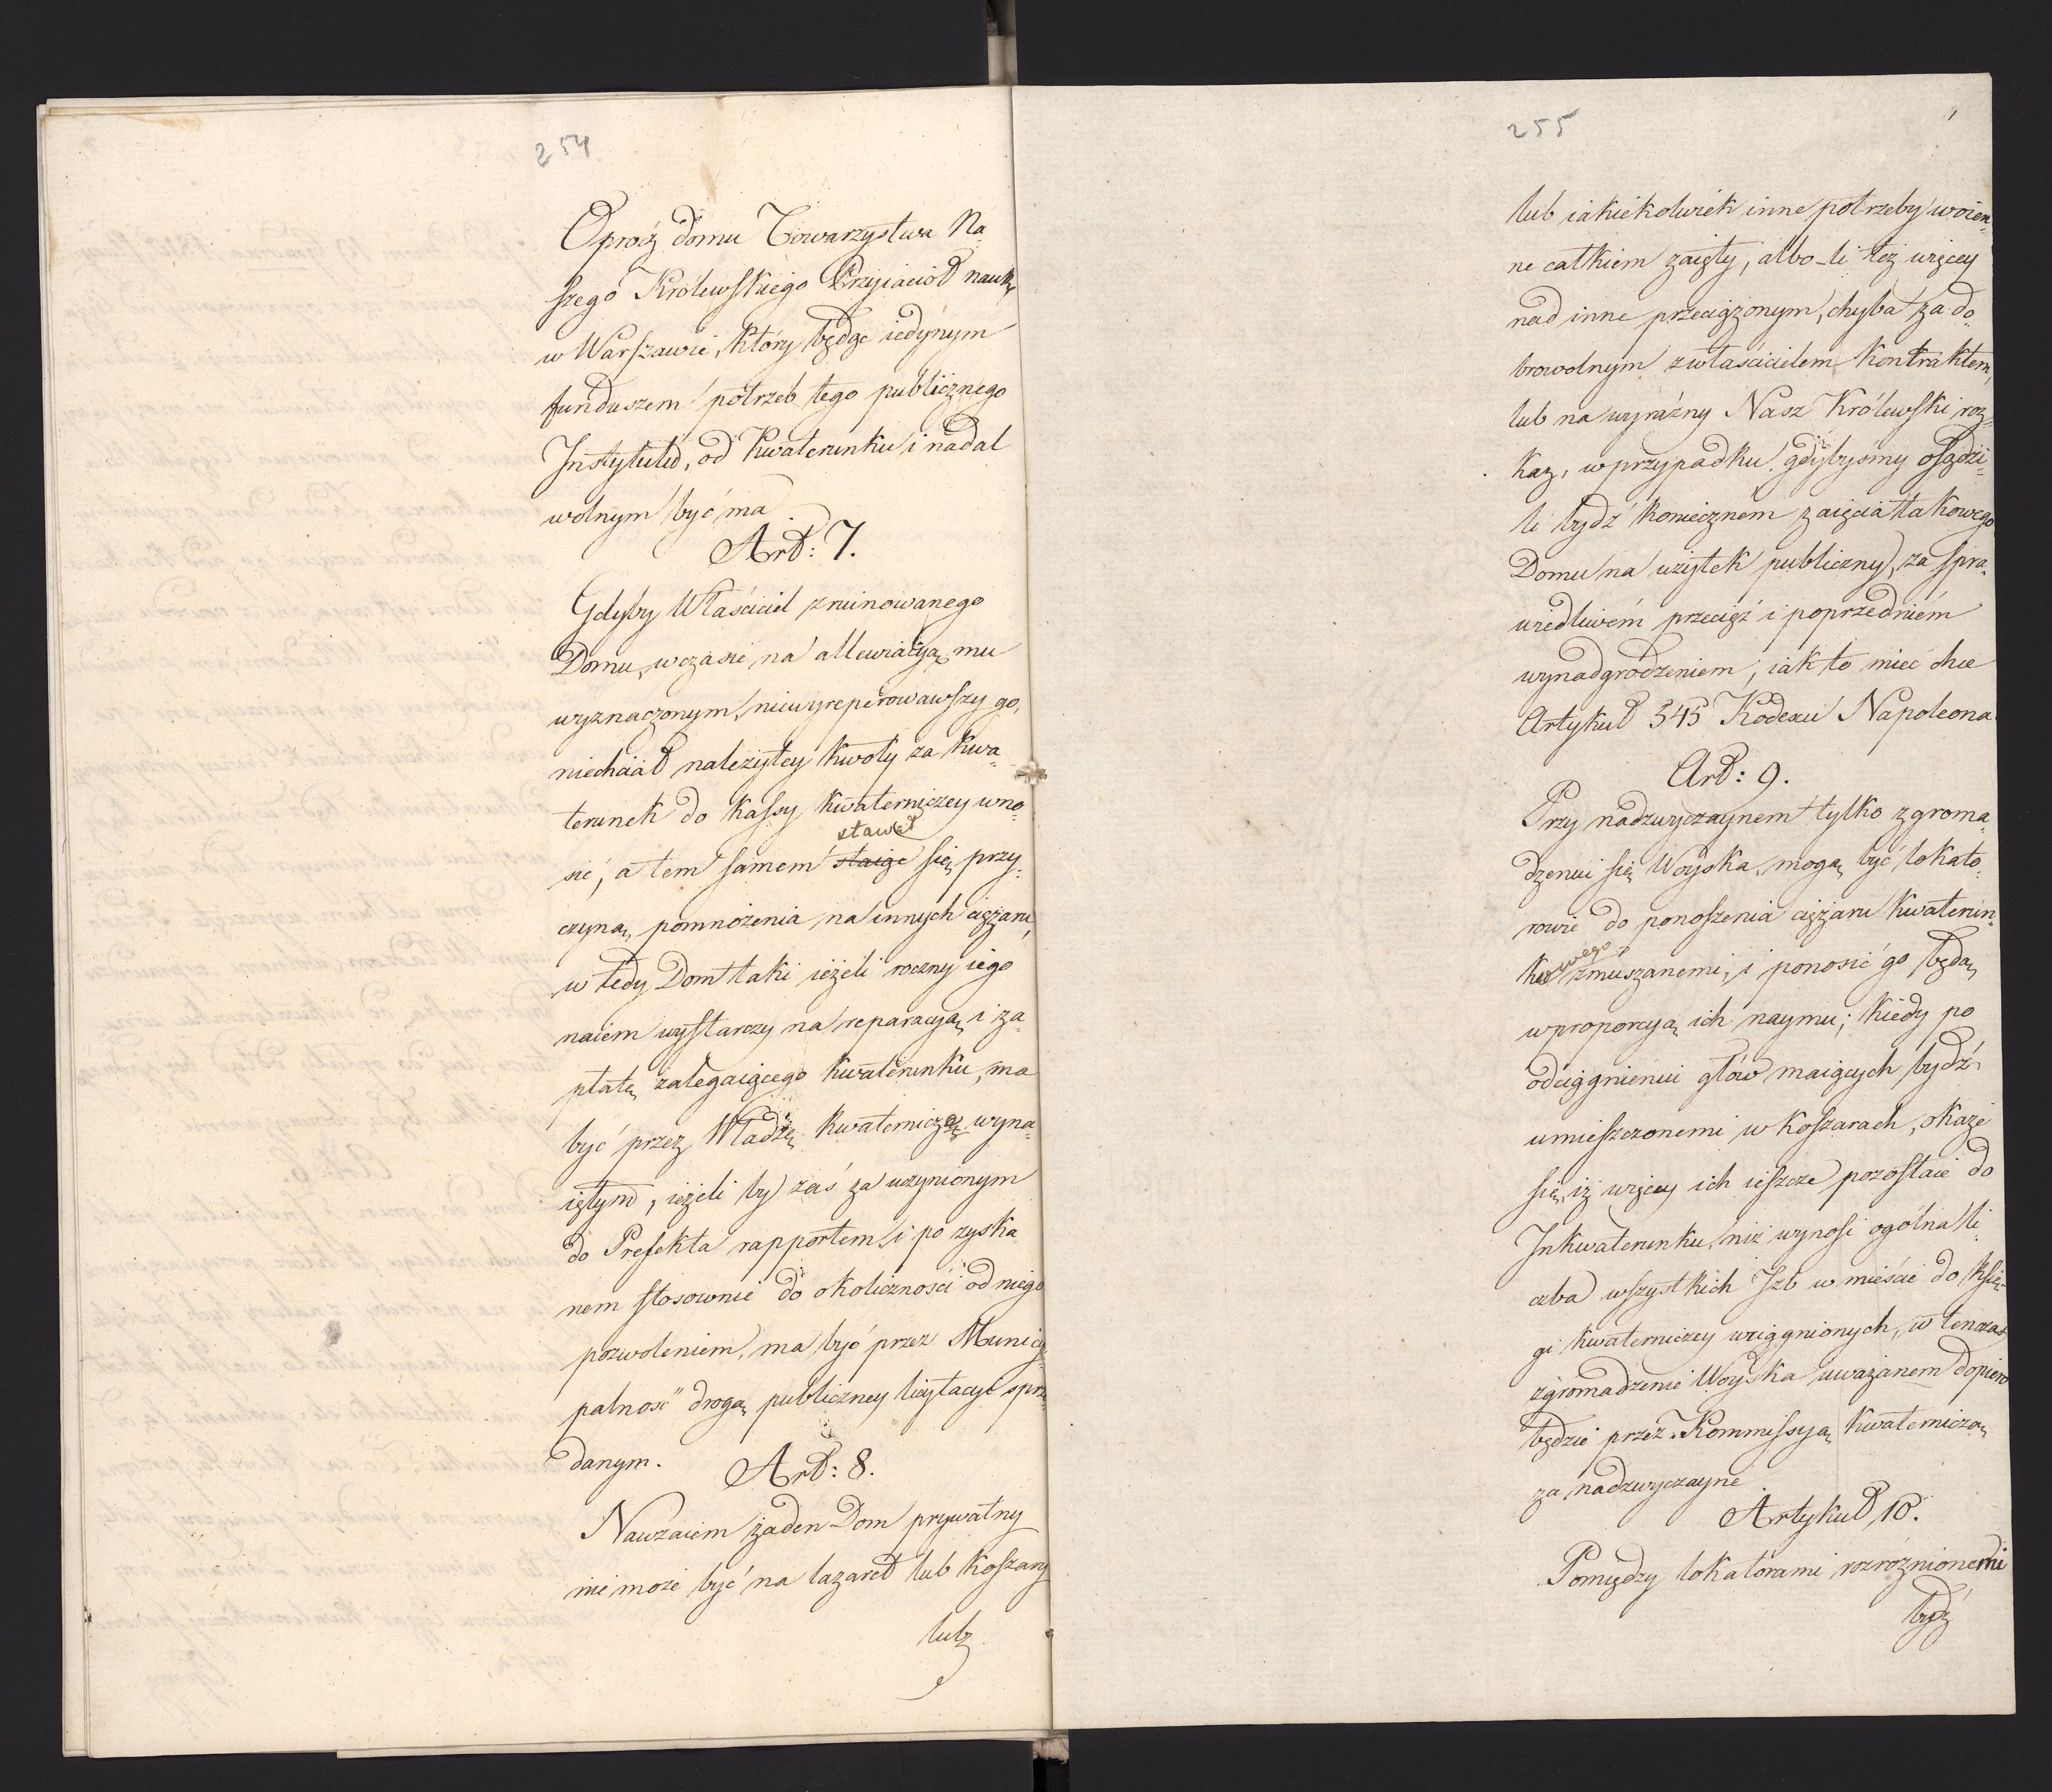 254
Oprócz domu Towarzystwa Na„
szego Królewskiego Przyiaciół nauk,
w Warszawie, który będąc iedynym
funduszem potrzeb tego publicznego
Instytutu, od Kwaterunku i nadal
wolnym być ma
Art: 7.
Gdyby Właściciel zruinowanego
Domu, w czasie na allewiacyą mu
wyznaczonym, niewyreperowawszy go,
niechciał należytey kwoty za kwa„
terunek do Kassy kwaterniczey wno„
sić, a tem samem staiąc stawał się przy„
czyną, pomnożenia na innych ciężaru,
w tedy Dom taki ieżeli roczny iego
naiem wystarczy na reparacyą i za„
płatę zalegaiącego kwaterunku, ma
być przez Władzę kwaterniczą wyna„
iętym, ieżeli by zaś za uczynionym
do Prefekta rapportem, i po zyska„
nem stosownie do okoliczności od niego
pozwoleniem, ma być przez Municy„
palność drogą publiczney licytacyi sprze„
danym.
Art: 8.
Nawzaiem żaden Dom prywatny
nie może być na lazaret lub Koszary
lub
255
lub iakiekolwiek inne potrzeby woien„
ne całkiem zaięty, albo-li też więcey
nad inne przeciążonym, chyba za do„
browolnym z właścicielem Kontraktem,
lub na wyraźny Nasz Królewski roz„
kaz, w przypadku, gdybyśmy osądzi„
li bydź koniecznem zaięcia takowego
Domu na użytek publiczny, za spra„
wiedliwém przecięż i poprzedniém
wynadgrodzeniem, iak to mieć chce
Artykuł 545 Kodexu Napoleona
Art: 9.
Przy nadzwyczaynem tylko zgroma„
dzeniu się Woyska, mogą być lokato„
rowie do ponoszenia ciężaru kwaterun„
kowego zmuszanemi, i ponosić go będą,
w proporcyą ich naymu; kiedy po
odciągnieniu głów maiących bydź
umieszczonemi w Koszarach, okaże
się, iż więcey ich ieszcze pozostaie do
Inkwaterunku, niż wynosi ogólna li„
czba wszystkich Izb w mieście do księ„
gi kwaterniczey wciągnionych, w tenczas
zgromadzenie Woyska uważanem dopiero
będzie przez Kommissyą kwaterniczą
za nadzwyczayne
Artykuł 10.
Pomiędzy lokatorami rozróżnionemi
bydź